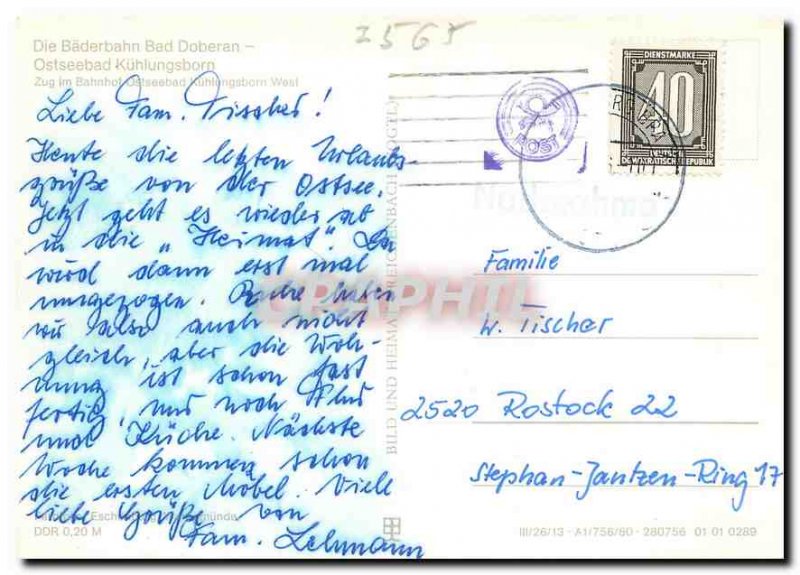 2565
Die Bäderbahn Bad Doberan –
Ostseebad Kühlungsborn
Zug im Bahnhof Ostseebad Kühlungsborn West
Liebe Fam. Tischer!
Heute die letzten Urlaubs-
grüße von der Ostsee.
Jetzt geht es wieder ab
in die „Heimat". Da
wird dann erst mal
umgezogen. Bade haben
wir also auch nicht
gleich, aber die Woh-
nung ist schon fast
fertig, und noch Flur
und Küche. Nächste
Woche kommen schon
die ersten Möbel. Viele
liebe Grüße von
Fam. Lehmann
DDR 0,20 M
BILD UND HEIMAT REICHENBACH (VOGTL)
POST
DIENSTMARKE
40
DEMOKRATISCHE REPUBLIK
Familie
W. Tischer
2520 Rostock 22
Stephan-Jantzen-Ring 17
III/26/13 - A1/756/80 - 280756 01 01 0289
GRAPHIL